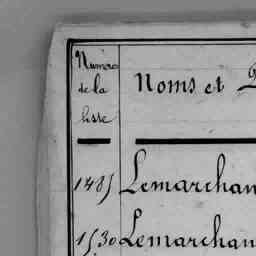 Numéros
de la
liste
Noms et
1485 Lemarchan
1530 Lemarchan